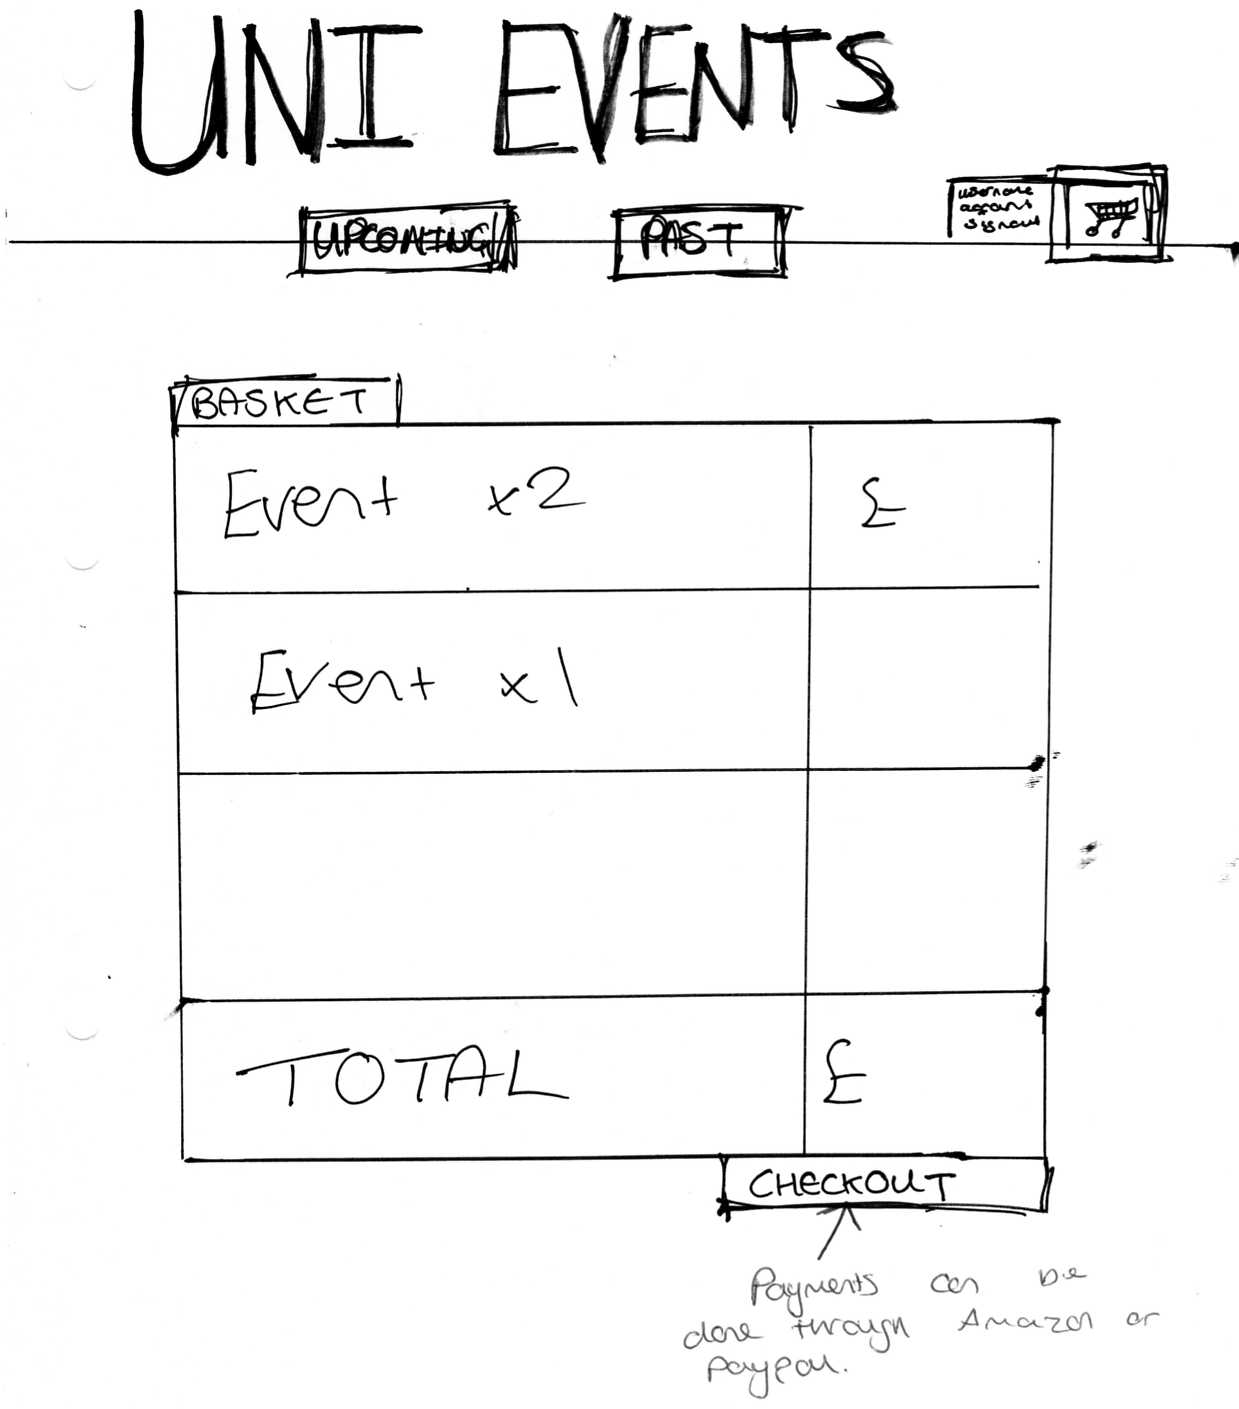 UNI EVENTS
UPCOMING PAST
username
account
signout
BASKET
Event x2 £
Event x1
TOTAL £
CHECKOUT
Payments can be
done through Amazon or
paypal.